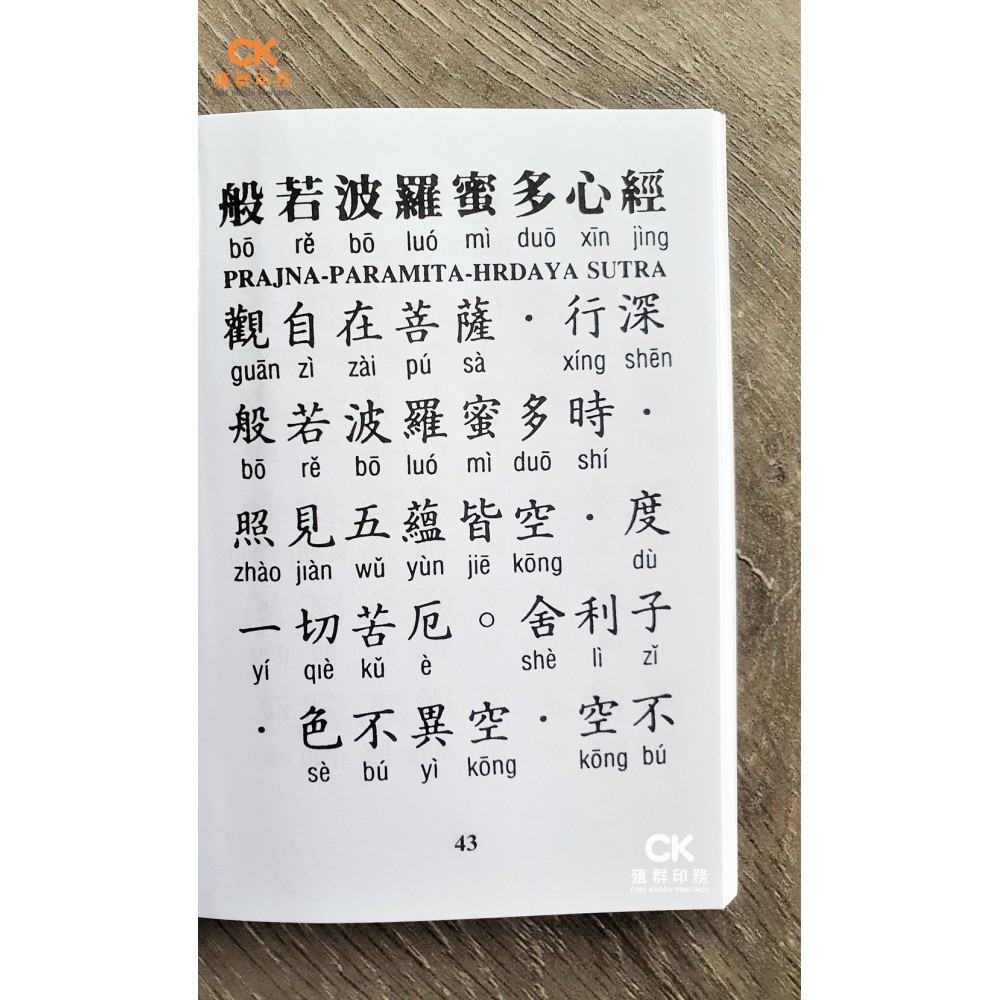 CK
殖群印務
CHEE KHOON PRINTINGS
般若波羅蜜多心經
bō rě bō luó mì duō xīn jìng
PRAJNA-PARAMITA-HRDAYA SUTRA
觀自在菩薩・行深
guān zì zài pú sà xíng shēn
般若波羅蜜多時・
bō rě bō luó mì duō shí
照見五蘊皆空・度
zhào jiàn wǔ yùn jiē kōng dù
一切苦厄。舍利子
yí qiè kǔ è shè lì zǐ
・色不異空・空不
sè bú yì kōng kōng bú
43
CK
殖群印務
CHEE KHOON PRINTINGS